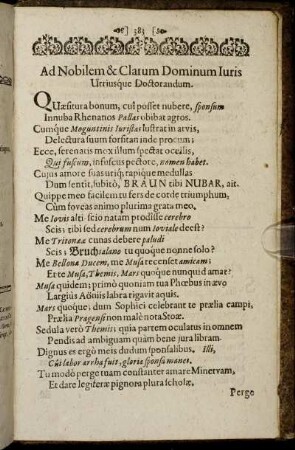 383
Ad Nobilem & Clarum Dominum Iuris
Utriusque Doctorandum.
QUæsitura bonum, cui posset nubere, sponsum
Innuba Rhenanos Pallas obibat agros.
Cumque Moguntinis Iuristas lustrat in arvis,
Delectura suum forsitan inde procum;
Ecce, serenatis mox illum spectat ocellis,
Qui fuscum, infuscus pectore, nomen habet.
Cujus amore suas uriq; rapique medullas
Dum sentit, subitò, BRAUN tibi NUBAR, ait.
Quippe meo facilem tu fers de corde triumphum,
Cum foveas animo plurima grata meo.
Me Iovis alti scio natam prodiisse cerebro
Scis: tibi sed cerebrum num joviale deest?
Me Tritonæa cunas debere paludi
Scis; Bruchsalano tu quoque nonne solo?
Me Bellona Ducem, me Musa recenset amicam:
Et te Musa, Themis, Mars quoque nunquid amat?
Musa quidem; primò quoniam tua Phœbus in ævo
Largiùs Aoniis labra rigavit aquis.
Mars quoque; dum Sophici celebrant te prælia campi,
Prælia Pragensi non malè nota Stoæ.
Sedula verò Themis; quia partem oculatus in omnem
Pendis ad ambiguam quàm bene jura libram.
Dignus es ergò meis dudum sponsalibus. Illi,
Cui labor arrha fuit, gloria sponsa manet.
Tu modò perge tuam constanter amare Minervam,
Et dare legiferæ pignora plura scholæ,
Perge